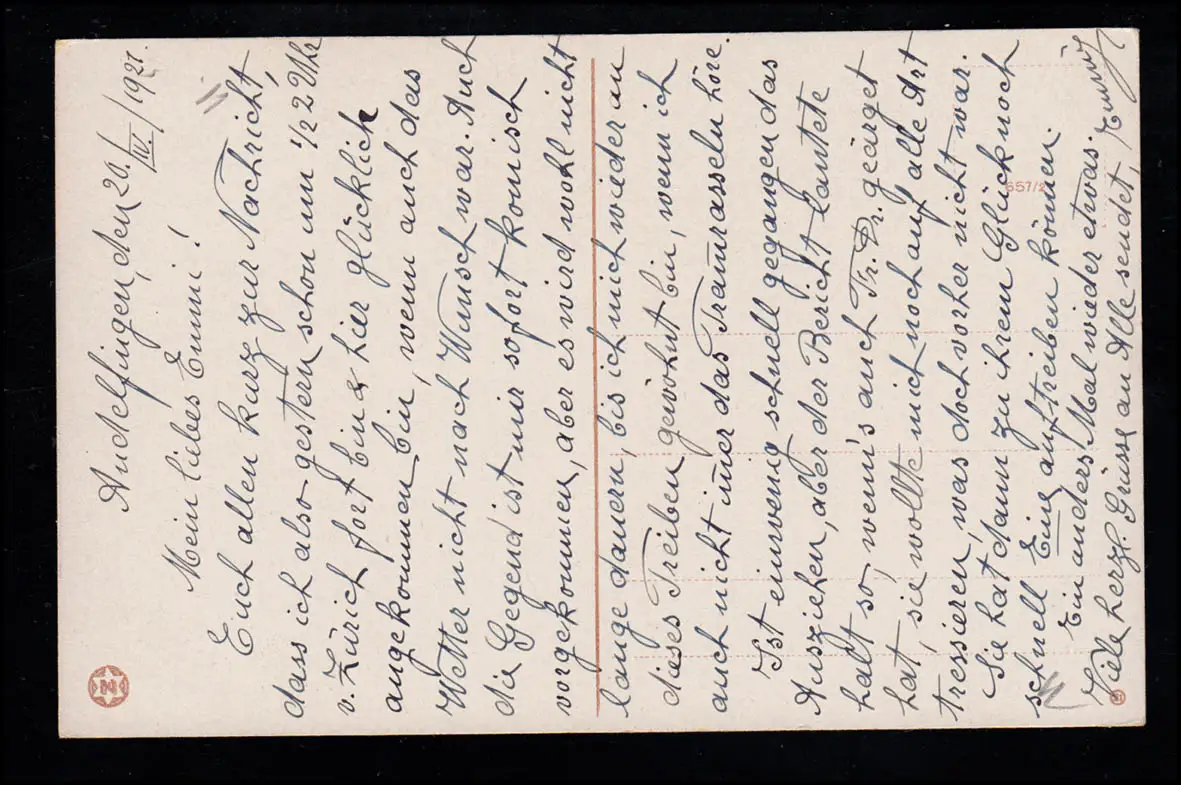 Andelfingen, den 20./IV./1921.
Mein liebes Emmi!
Euch allen kurz zur Nachricht,
dass ich also gestern schon um ½ 2 Uhr
v. Zürich fort bin & hier glücklich
angekommen bin, wenn auch das
Wetter nicht nach Wunsch war. Auch
die Gegend ist mir sofort komisch
vorgekommen, aber es wird wohl nicht
lange dauern, bis ich mich wieder an
dieses Treiben gewöhnt bin, wenn ich
auch nicht im̄er das Tramrasseln höre.
Ist ein wenig schnell gegangen das
Ausziehen, aber der Bericht lautete
halt so, wenn's auch Fr. Dr. geärget
hat, sie wollte mich noch auf alle Art
tressieren, was doch vorher nicht war.
Sie hat dann zu ihrem Glück noch
schnell Eine auftreiben könen.
Ein anders Mal wieder etwas.
Viele herzl. Grüsse an Alle sendet,
657/2